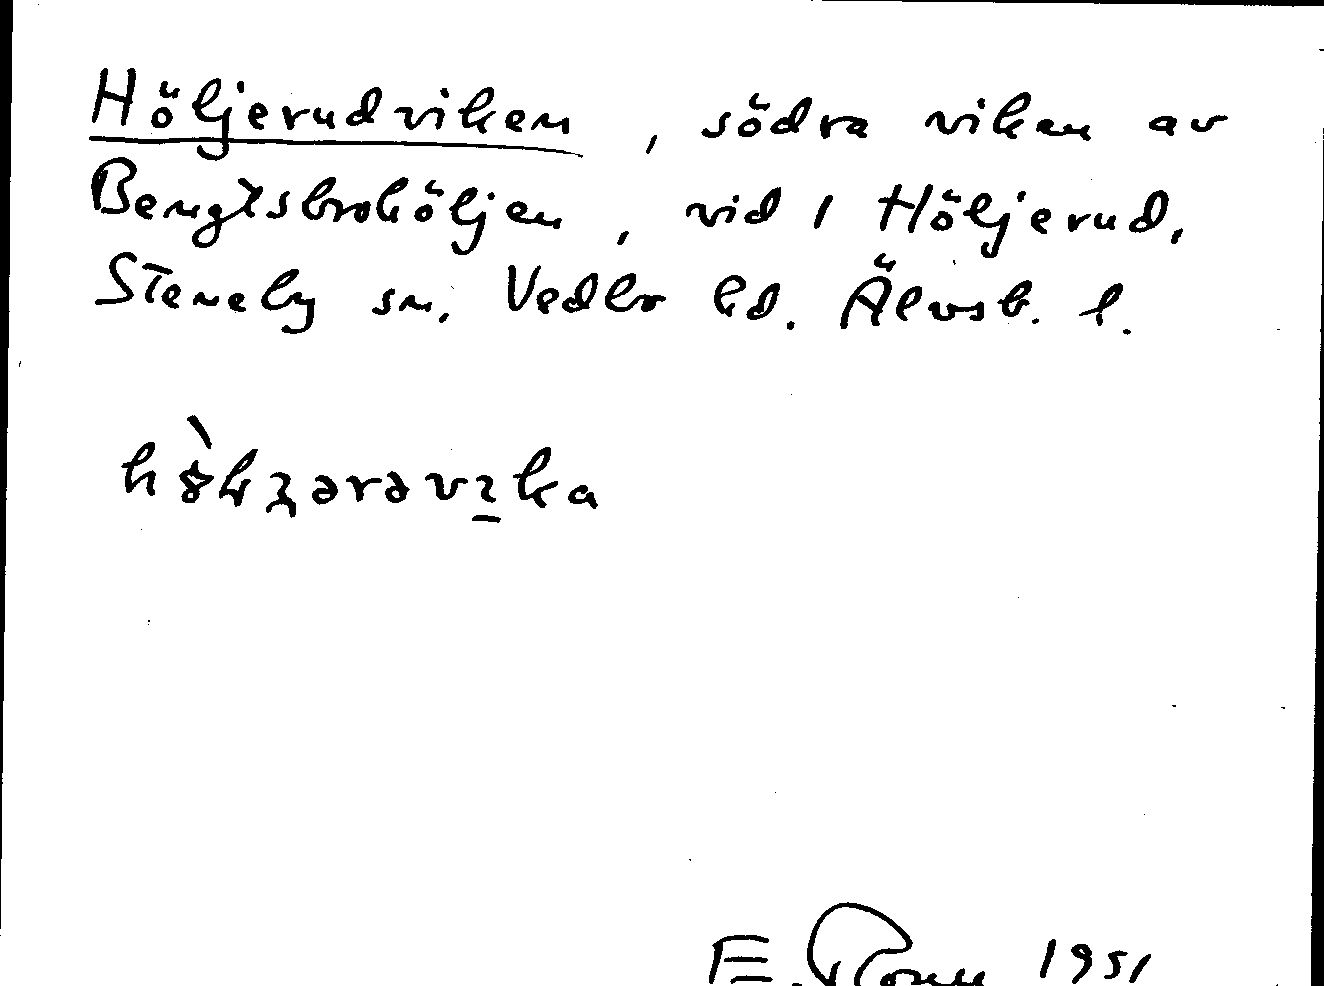 Höljerudviken, södra viken av
Bengtsbrohöljen, vid 1 Höljerud,
Steneby sn. Vedbo hd. Älvsb. l.
E. 1951